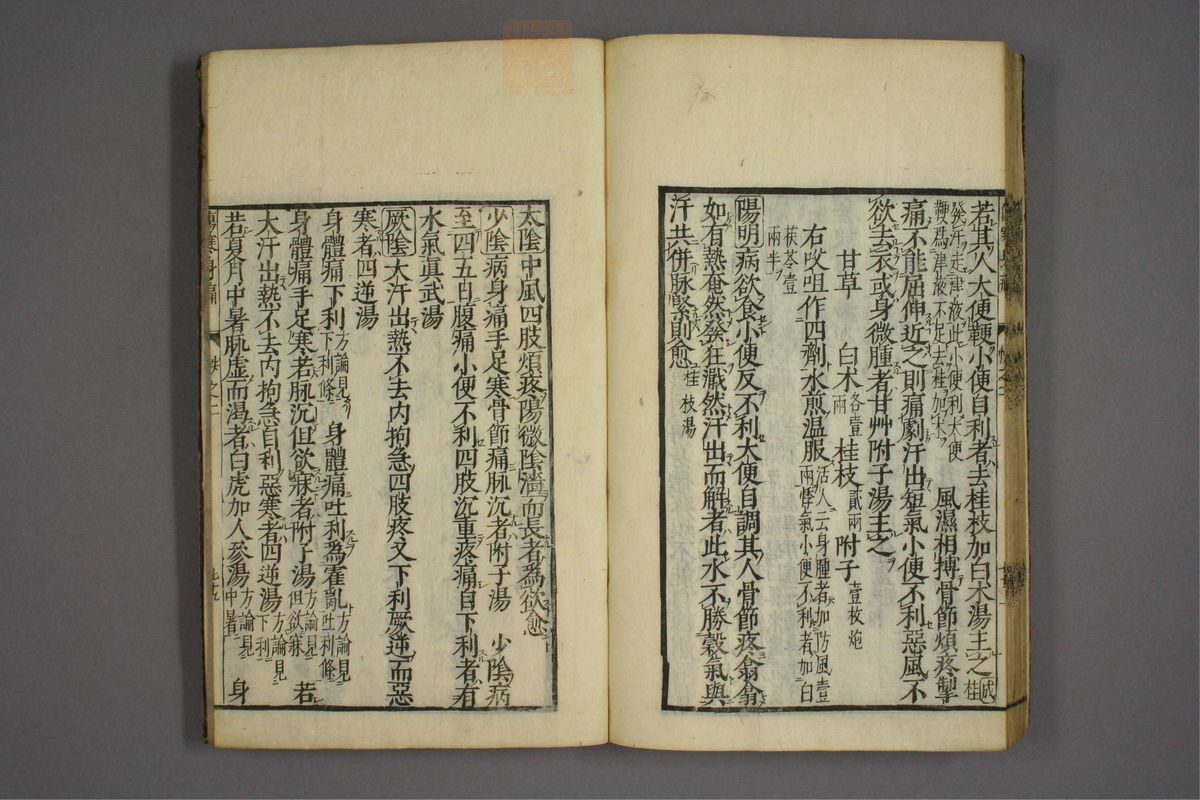 若其人大便鞕小便自利者去桂枝加白朮湯主之 成 桂
發汗走津液此小便利大便
鞕爲津液不足去桂加朮 風濕相搏骨節煩疼掣
痛不能屈伸近之則痛劇汗出短氣小便不利惡風不
欲去衣或身微腫者甘艸附子湯主之
甘草 白朮各壹兩 桂枝貳兩 附子壹枚炮
右㕮咀作四劑水煎温服活人云身腫者加防風壹
兩悸氣小便不利者加白
茯苓壹
兩半
陽明病欲食小便反不利大便自調其人骨節疼翕翕
如有熱奄然發狂濈然汗出而解者此水不勝穀氣與
汗共併脉緊則愈 桂枝湯
太陰中風四肢煩疼陽微陰濇而長者為欲愈
少陰病身痛手足寒骨節痛脉沉者附子湯 少陰病
至四五日腹痛小便不利四肢沉重疼痛自下利者有
水氣眞武湯
厥陰大汗出熱不去内拘急四肢疼又下利厥逆而惡
寒者四逆湯
身體痛下利方論見下利條 身體痛吐利為霍亂方論見吐利條
身體痛手足寒若脉沉但欲寐者附子湯方論見但欲寐 若
大汗出熱不去内拘急自利惡寒者四逆湯方論見下利
若夏月中暑脉虚而渴者白虎加人參湯方論見中暑 身